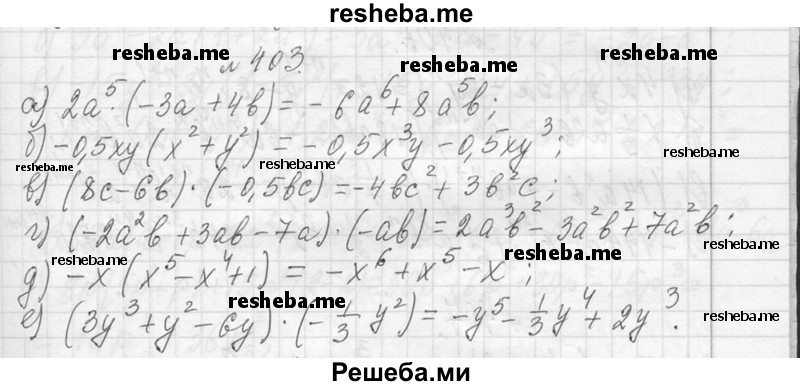 resheba.me
resheba.me resheba.me
№ 403. resheba.me
а) 2a⁵·(-3a + 4b) = -6a⁶ + 8a⁵b;
б) -0,5xy(x² + y²) = -0,5x³y - 0,5xy³;
resheba.me resheba.me resheba.me
в) (8c - 6b)·(-0,5bc) = -4bc² + 3b²c;
г) (-2a²b + 3ab - 7a)·(-ab) = 2a³b² - 3a²b² + 7a²b;
resheba.me resheba.me resheba.me
д) -x(x⁵ - x⁴ + 1) = -x⁶ + x⁵ - x;
resheba.me resheba.me
е) (3y³ + y² - 6y)·(-1/3 y²) = -y⁵ - 1/3 y⁴ + 2y³.
Решеба.ми